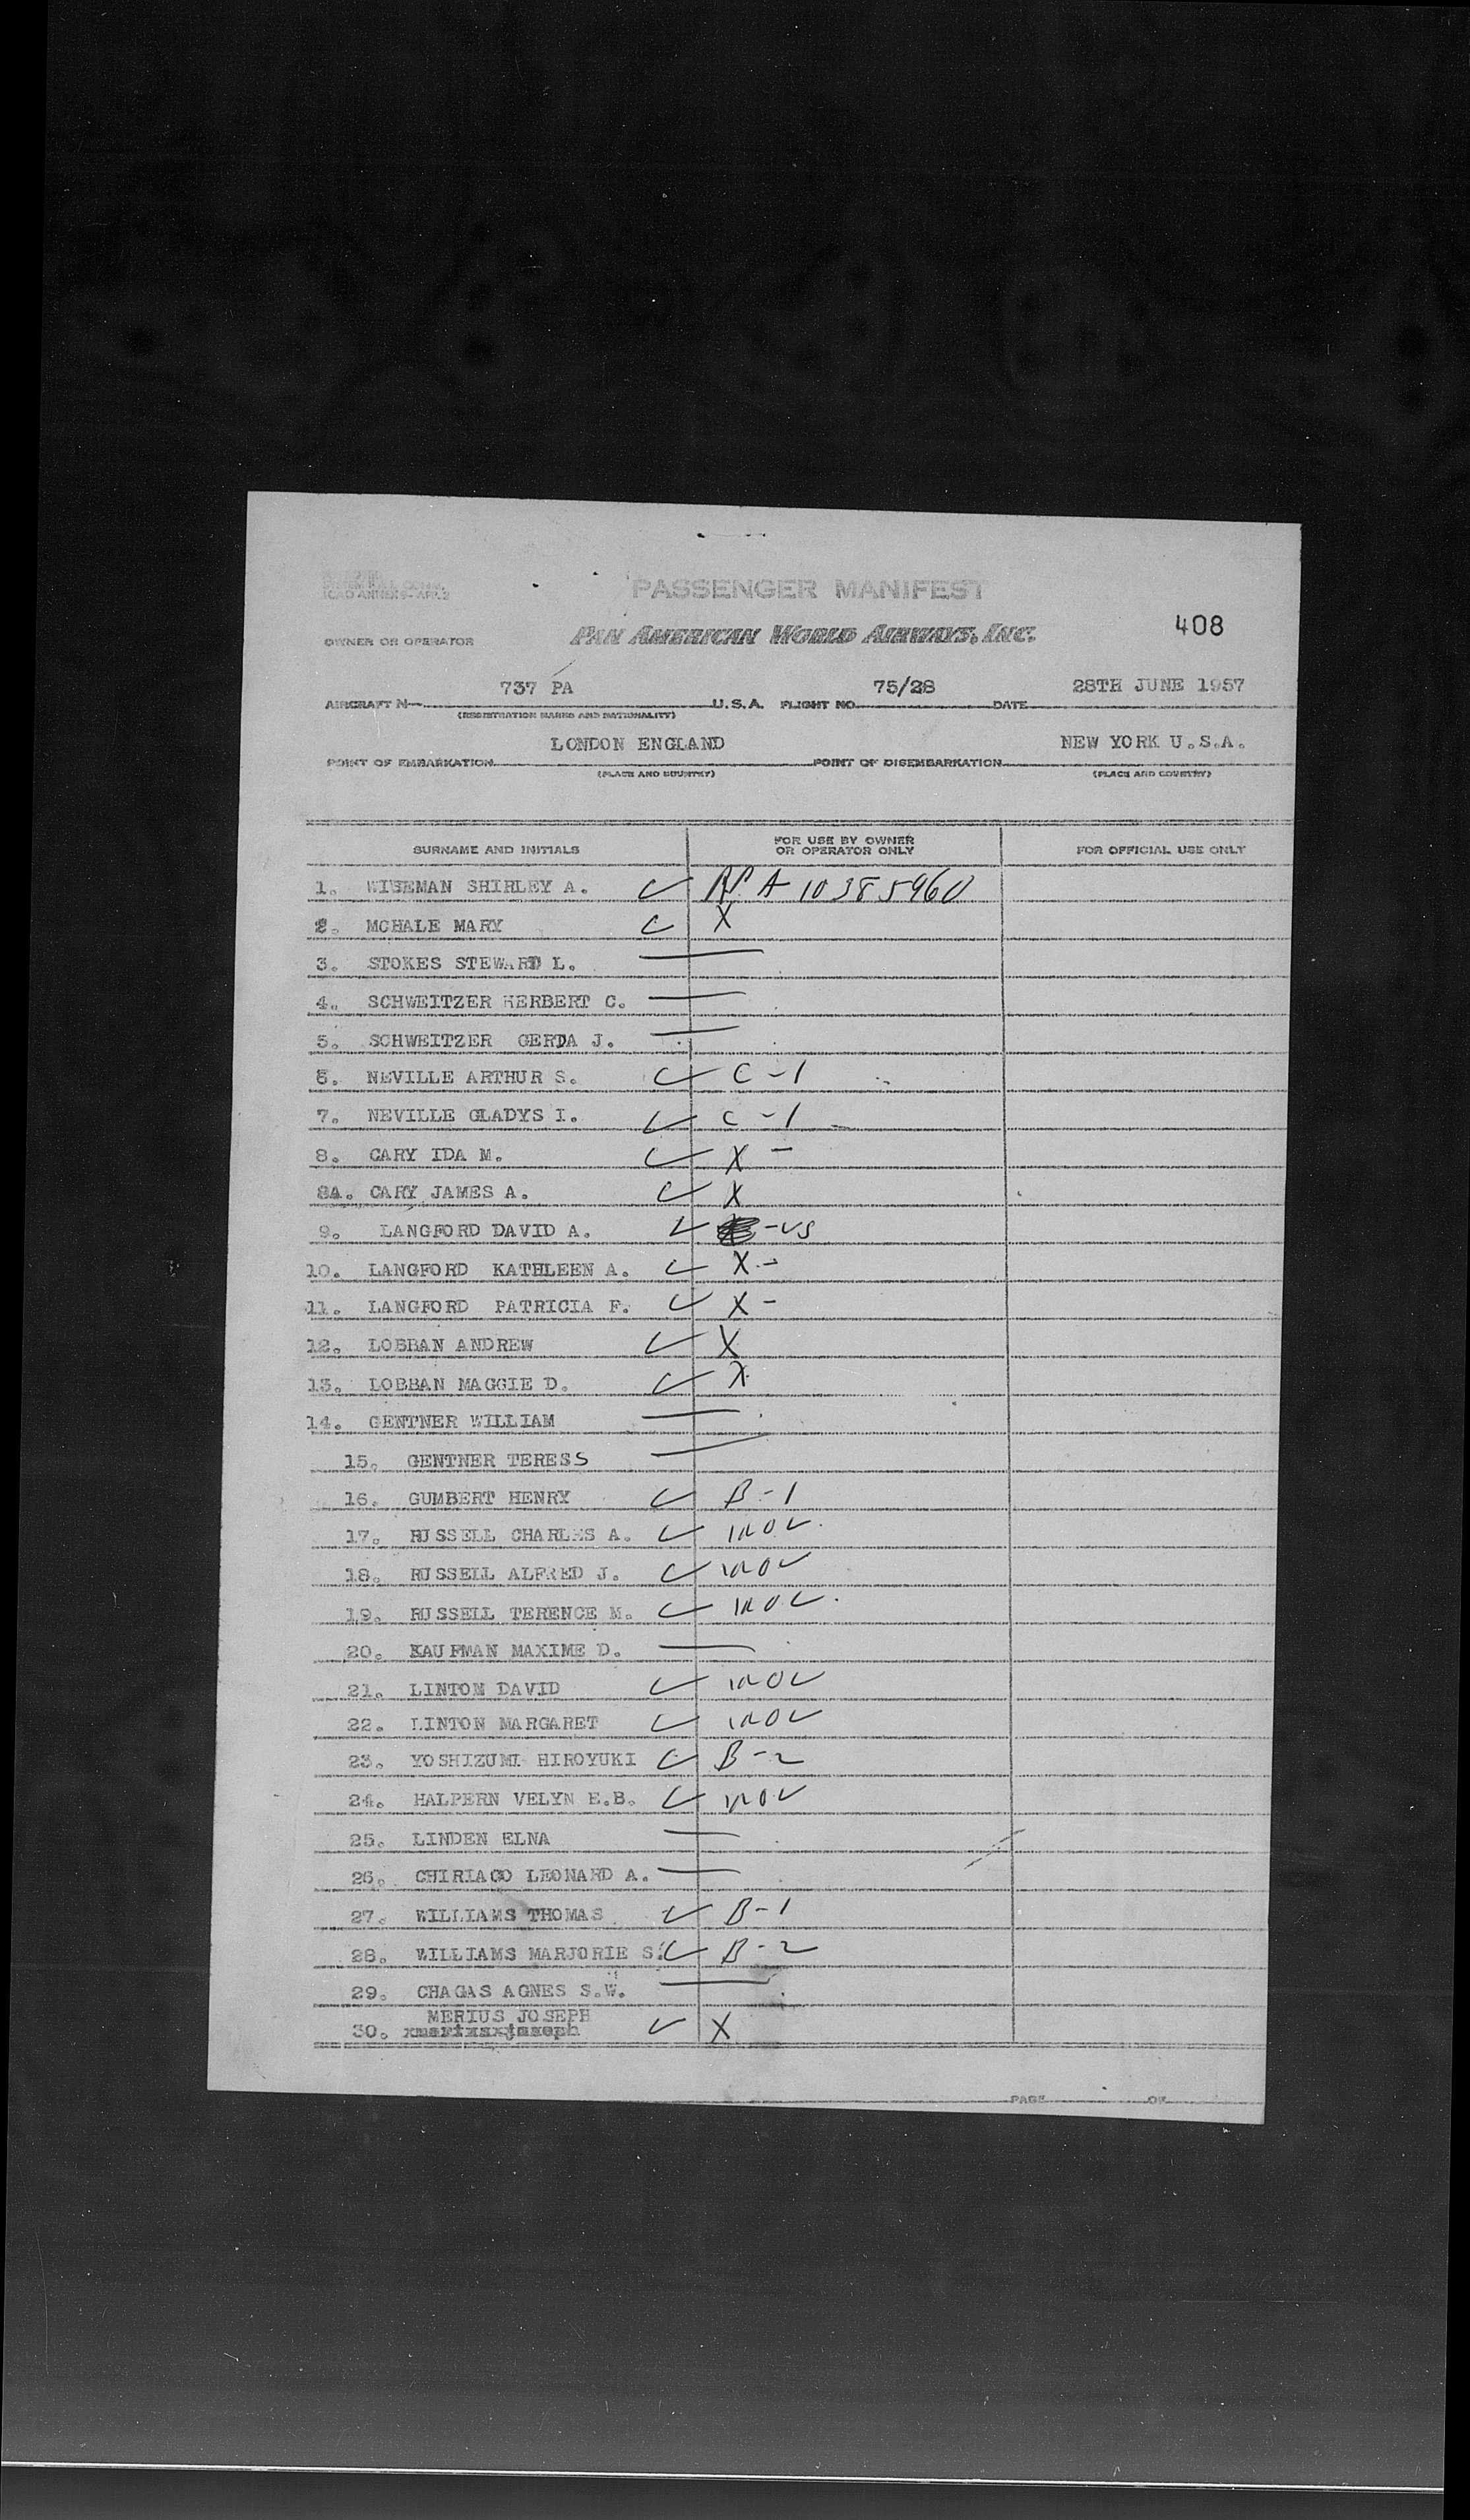 ICAO ANNEX 9-APP. 2
PASSENGER MANIFEST
408
OWNER OR OPERATOR PAN AMERICAN WORLD AIRWAYS, INC.
737 PA 75/28 28TH JUNE 1957
AIRCRAFT N— U.S.A. FLIGHT NO. DATE
(REGISTRATION MARKS AND NATIONALITY)
LONDON ENGLAND NEW YORK U.S.A.
POINT OF EMBARKATION POINT OF DISEMBARKATION
(PLACE AND COUNTRY) (PLACE AND COUNTRY)
SURNAME AND INITIALS FOR USE BY OWNER OR OPERATOR ONLY FOR OFFICIAL USE ONLY
1. WISEMAN SHIRLEY A. ✓ A 10385960
2. MCHALE MARY ✓ X
3. STOKES STEWARD L. —
4. SCHWEITZER HERBERT C. —
5. SCHWEITZER GERDA J. —
6. NEVILLE ARTHUR S. ✓ C-1
7. NEVILLE GLADYS I. ✓ C-1
8. CARY IDA M. ✓ X -
8A. CARY JAMES A. ✓ X
9. LANGFORD DAVID A. ✓ -US
10. LANGFORD KATHLEEN A. ✓ X -
11. LANGFORD PATRICIA F. ✓ X -
12. LOBBAN ANDREW ✓ X
13. LOBBAN MAGGIE D. ✓ X
14. GENTNER WILLIAM —
15. GENTNER TERESS —
16. GUMBERT HENRY ✓ B-1
17. RUSSELL CHARLES A. ✓
18. RUSSELL ALFRED J. ✓
19. RUSSELL TERENCE M. ✓
20. KAUFMAN MAXIME D. —
21. LINTON DAVID ✓
22. LINTON MARGARET ✓
23. YOSHIZUMI HIROYUKI ✓ B-2
24. HALPERN VELYN E.B. ✓
25. LINDEN ELNA —
26. CHIRIACO LEONARD A. —
27. WILLIAMS THOMAS ✓ B-1
28. WILLIAMS MARJORIE S. ✓ B-2
29. CHAGAS AGNES S.W. —
MERIUS JOSEPH
30. ✓ X
PAGE OF